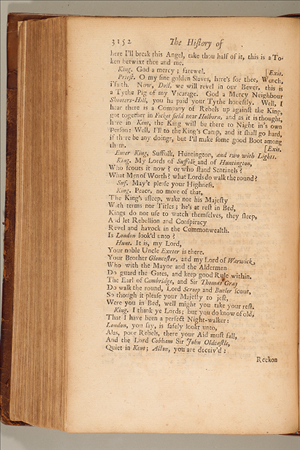 3152 The History of
here I'll break this Angel, take thou half of it, this is a To-
ken betwixt thee and me.
King. God a mercy; farewel. [Exit.
Priest. O my fine golden Slaves, here's for thee, Wench,
i'faith. Now, Doll, we will revel in our Bever, this is
a Tythe Pig of my Vicarage. God a Mercy Neighbour
Shooters-Hill, you ha paid your Tythe honestly. Well, I
hear there is a Company of Rebels up against the King,
got together in Ficket field near Holborn, and as it is thought,
here in Kent, the King will be there to Night in's own
Person: Well, I'll to the King's Camp, and it shall go hard,
if there be any doings, but I'll make some good Boot among
them. [Exit.
Enter King, Suffolk, Huntington, and two with Lights.
King. My Lords of Suffolk and of Huntington,
Who scouts it now? or who stand Sentinels?
What Men of Worth? what Lords do walk the round?
Suf. May't please your Highness,
King. Peace, no more of that,
The King's asleep, wake not his Majesty
With terms nor Titles; he's at rest in Bed,
Kings do not use to watch themselves, they sleep,
And let Rebellion and Conspiracy
Revel and havock in the Commonwealth.
Is London look'd unto?
Hunt. It is, my Lord,
Your noble Uncle Exeter is there,
Your Brother Gloucester, and my Lord of Warwick,
Who with the Mayor and the Aldermen
Do guard the Gates, and keep good Rule within.
The Earl of Cambridge, and Sir Thomas Gray
Do walk the round, Lord Scroop and Butler scout,
So though it please your Majesty to jest,
Were you in Bed, well might you take your rest.
King. I thank ye Lords; but you do know of old,
That I have been a perfect Night-walker:
London, you say, is safely lookt unto,
Alas, poor Rebels, there your Aid must fail,
And the Lord Cobham Sir John Oldcastle,
Quiet in Kent; Acton, you are deceiv'd:
Reckon